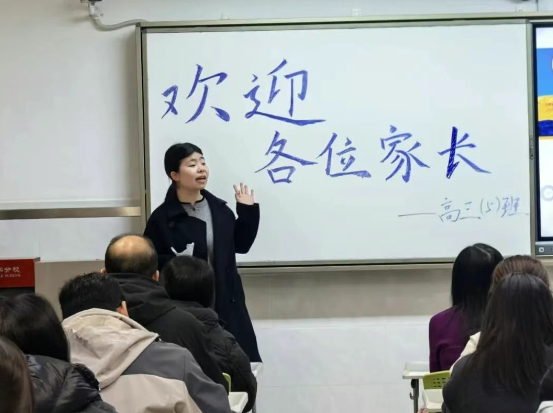 欢迎
各位家长
——高三(5)班
分校